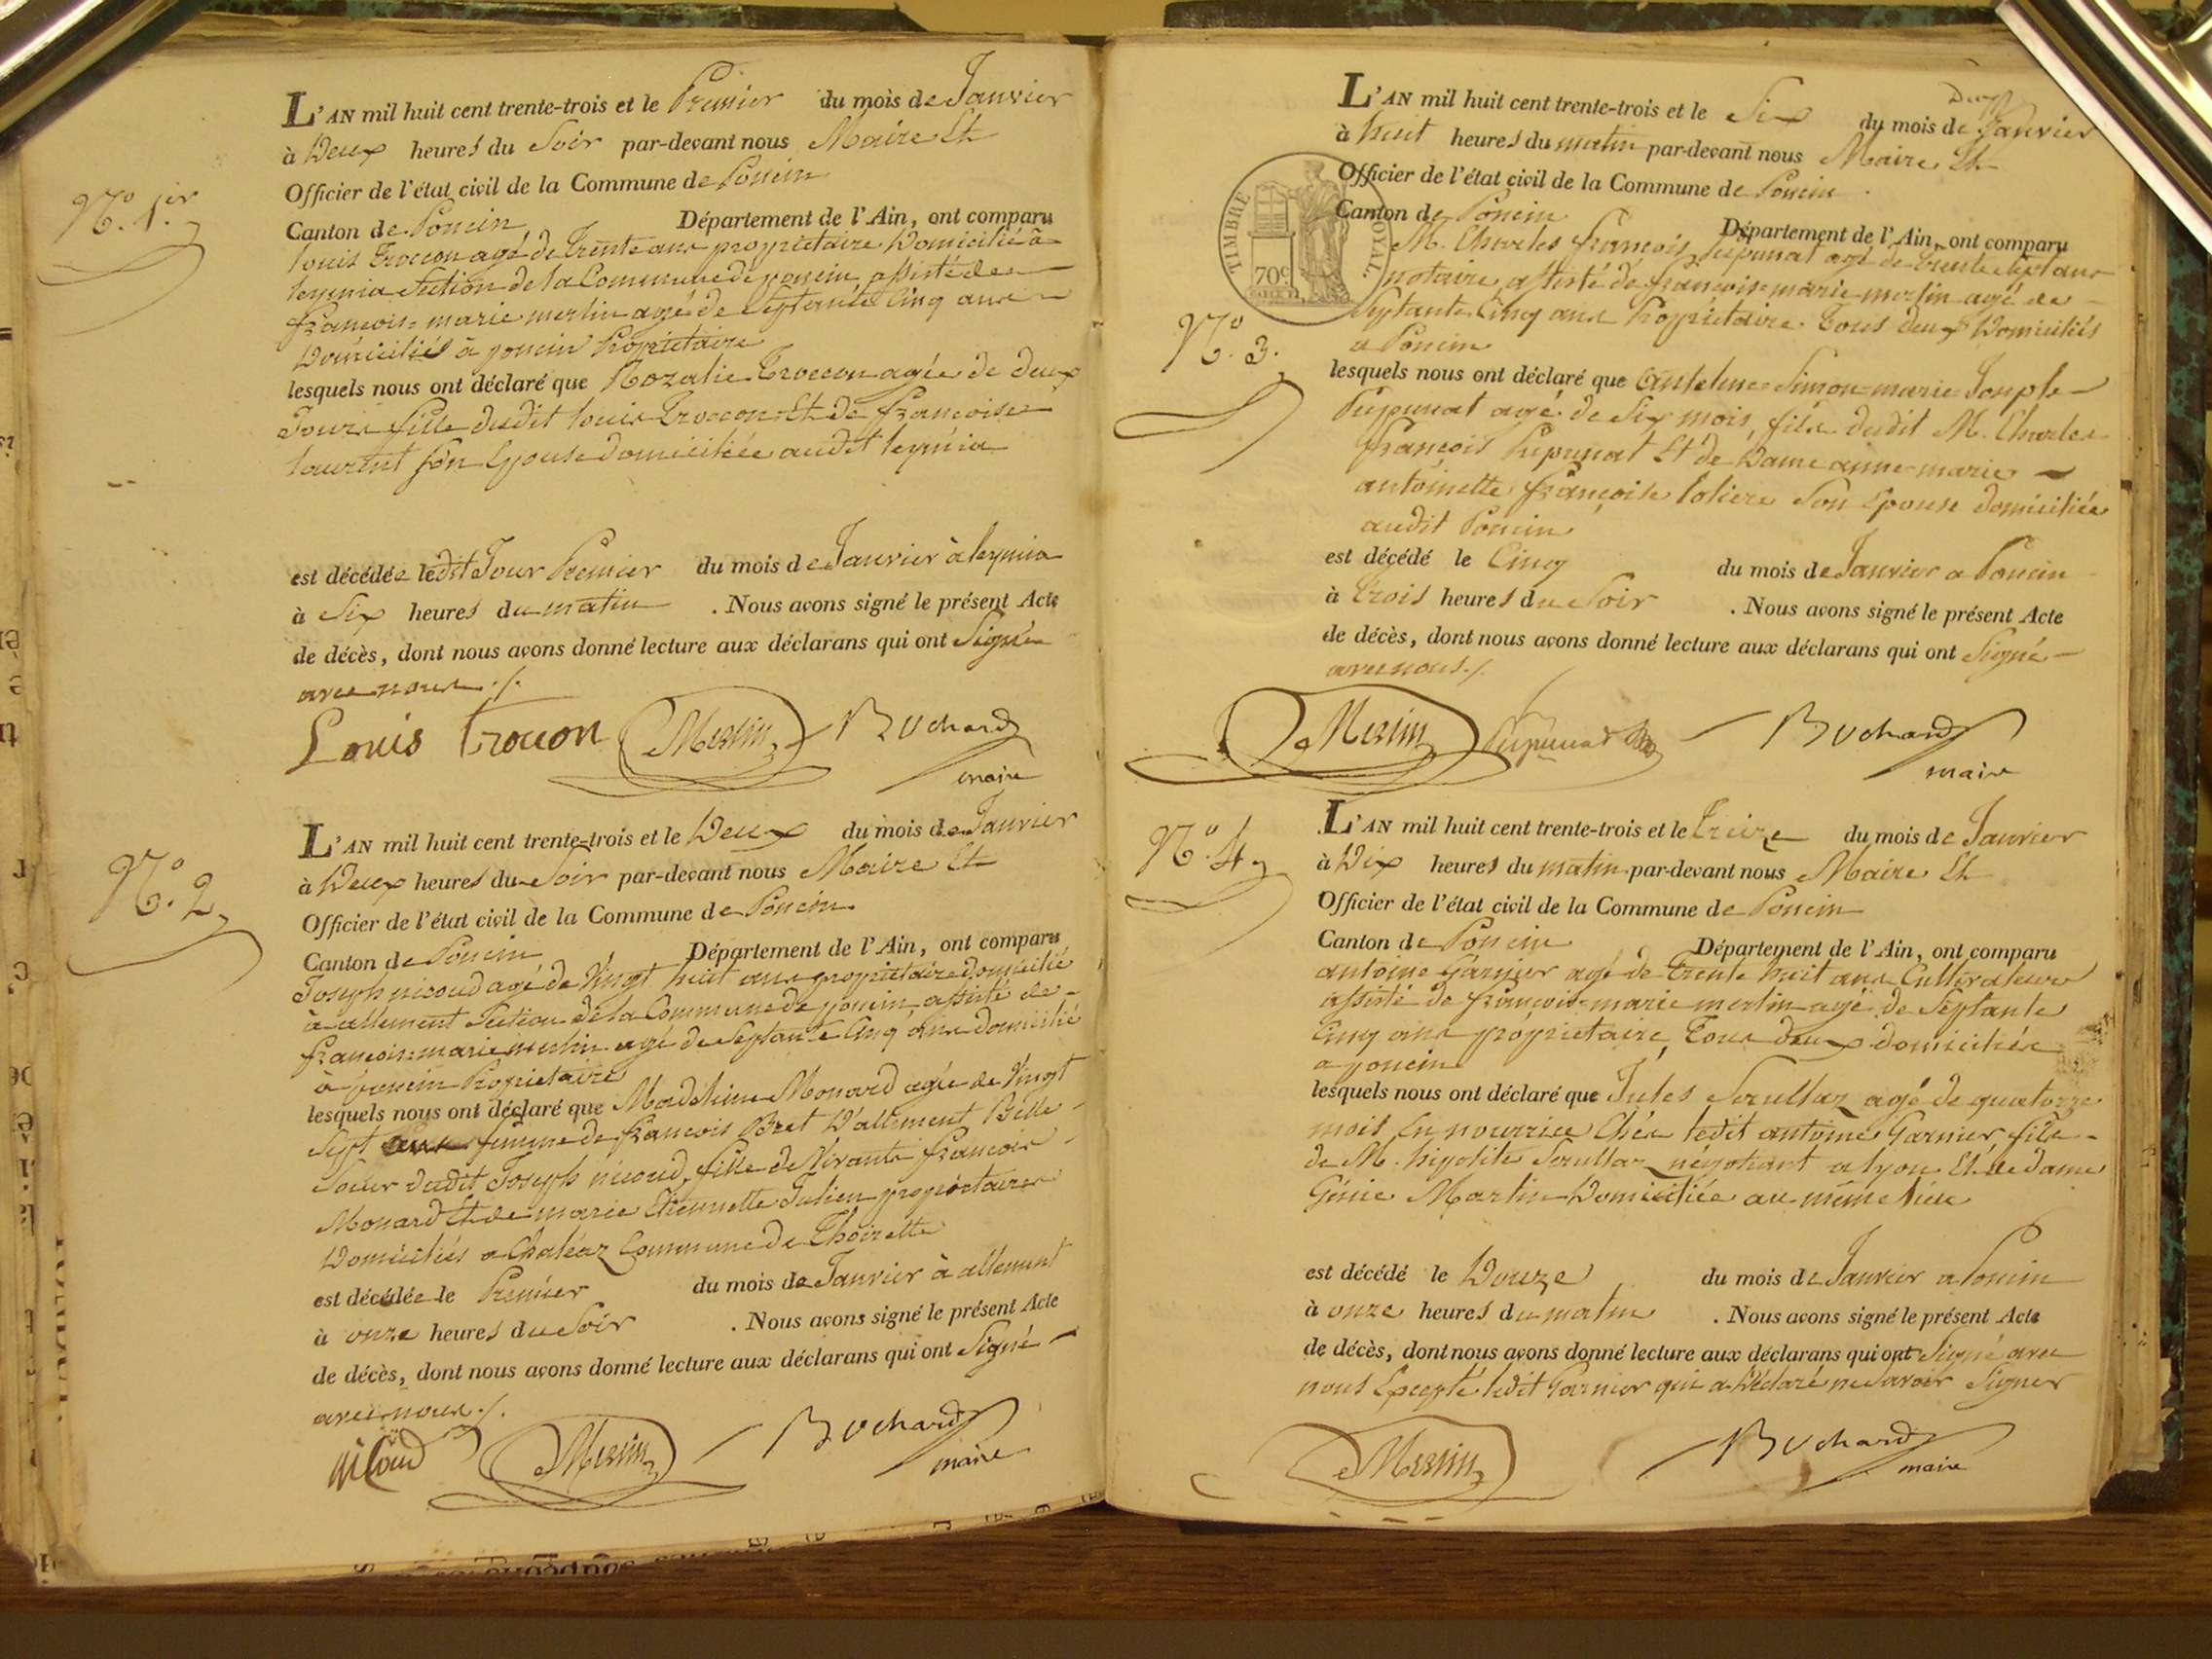 N.o 1.er
L'AN mil huit cent trente-trois et le Premier du mois de Janvier
à Deux heures du Soir par-devant nous Maire Et
Officier de l'état civil de la Commune de Poncin
Canton de Poncin Département de l'Ain, ont comparu
louis Troccon agé de Trente ans proprietaire Domicilié à
leymia Section de la Commune de poncin assisté de
françois-marie merlin agé de Septante Cinq ans
Domiciliés à poncin Proprietaire
lesquels nous ont déclaré que Rozalie Troccon agée de deux
Jours fille dudit louis Troccon Et de françoise
laurent son Epouse domiciliée audit leymia
est décédée ledit Jour Premier du mois de Janvier à leymia
à Six heures du matin . Nous avons signé le présent Acte
de décès, dont nous avons donné lecture aux déclarans qui ont Signé
avec nous ./.
Louis Trocon Merlin Bochard
maire
N.o 2
L'AN mil huit cent trente-trois et le Deux du mois de Janvier
à Deux heures du Soir par-devant nous Maire Et
Officier de l'état civil de la Commune de Poncin
Canton de Poncin Département de l'Ain, ont comparu
Joseph nicoud agé de Vingt huit ans proprietaire domicilié
à allement Section de la Commune de poncin, assisté de
françois-marie merlin agé de Septante Cinq ans domicilié
à poncin Proprietaire
lesquels nous ont déclaré que Madeleine Monard agée de Vingt
Sept ans femme de françois Bret D'allement Belle
Soeur dudit Joseph nicoud, fille de Vivants françois
Monard Et de marie Etiennette Julien proprietaires
Domiciliés a Chaléaz Commune de Thoirette
est décédée le Premier du mois de Janvier à allement
à onze heures du Soir . Nous avons signé le présent Acte
de décès, dont nous avons donné lecture aux déclarans qui ont Signé
avec nous ./.
nicoud Merlin Bochard
maire
TIMBRE ROYAL
70c
N.o 3.
L'AN mil huit cent trente-trois et le Six du mois de Janvier
à huit heures du matin par-devant nous Maire Et
Officier de l'état civil de la Commune de Poncin
Canton de Poncin Département de l'Ain, ont comparu
M. Charles françois Pupunat agé de trente Sept ans
notaire, assisté de françois-marie merlin agé de
Septante Cinq ans Propriétaire. Tous deux Domiciliés
a Poncin
lesquels nous ont déclaré que Antelme-Simon-marie Josephe
Pupunat agé de Six mois, fils dudit M. Charles
françois Pupunat Et de Dame anne-marie
antoinette françoise Son Epouse domiciliée
audit Poncin
est décédé le Cinq du mois de Janvier a Poncin
à Trois heures du Soir . Nous avons signé le présent Acte
de décès, dont nous avons donné lecture aux déclarans qui ont Signé
avec nous ./.
Merlin Pupunat Bochard
maire
N.o 4
L'AN mil huit cent trente-trois et le Treize du mois de Janvier
à Dix heures du matin par-devant nous Maire Et
Officier de l'état civil de la Commune de Poncin
Canton de Poncin Département de l'Ain, ont comparu
antoine Garnier agé de Trente huit ans Cultivateur
assisté de françois-marie merlin agé de Septante
Cinq ans proprietaire, Tous deux domiciliés
a poncin
lesquels nous ont déclaré que Jules agé de quatorze
mois En nourrice Chés ledit antoine Garnier fils
de M. hipolite négotiant a lyon Et de dame
Génie Martin Domiciliée au même lieu
est décédé le Douze du mois de Janvier a Poncin
à onze heures du matin . Nous avons signé le présent Acte
de décès, dont nous avons donné lecture aux déclarans qui ont Signé avec
nous Excepté ledit Garnier qui a Déclaré ne Savoir Signer
Merlin Bochard
maire